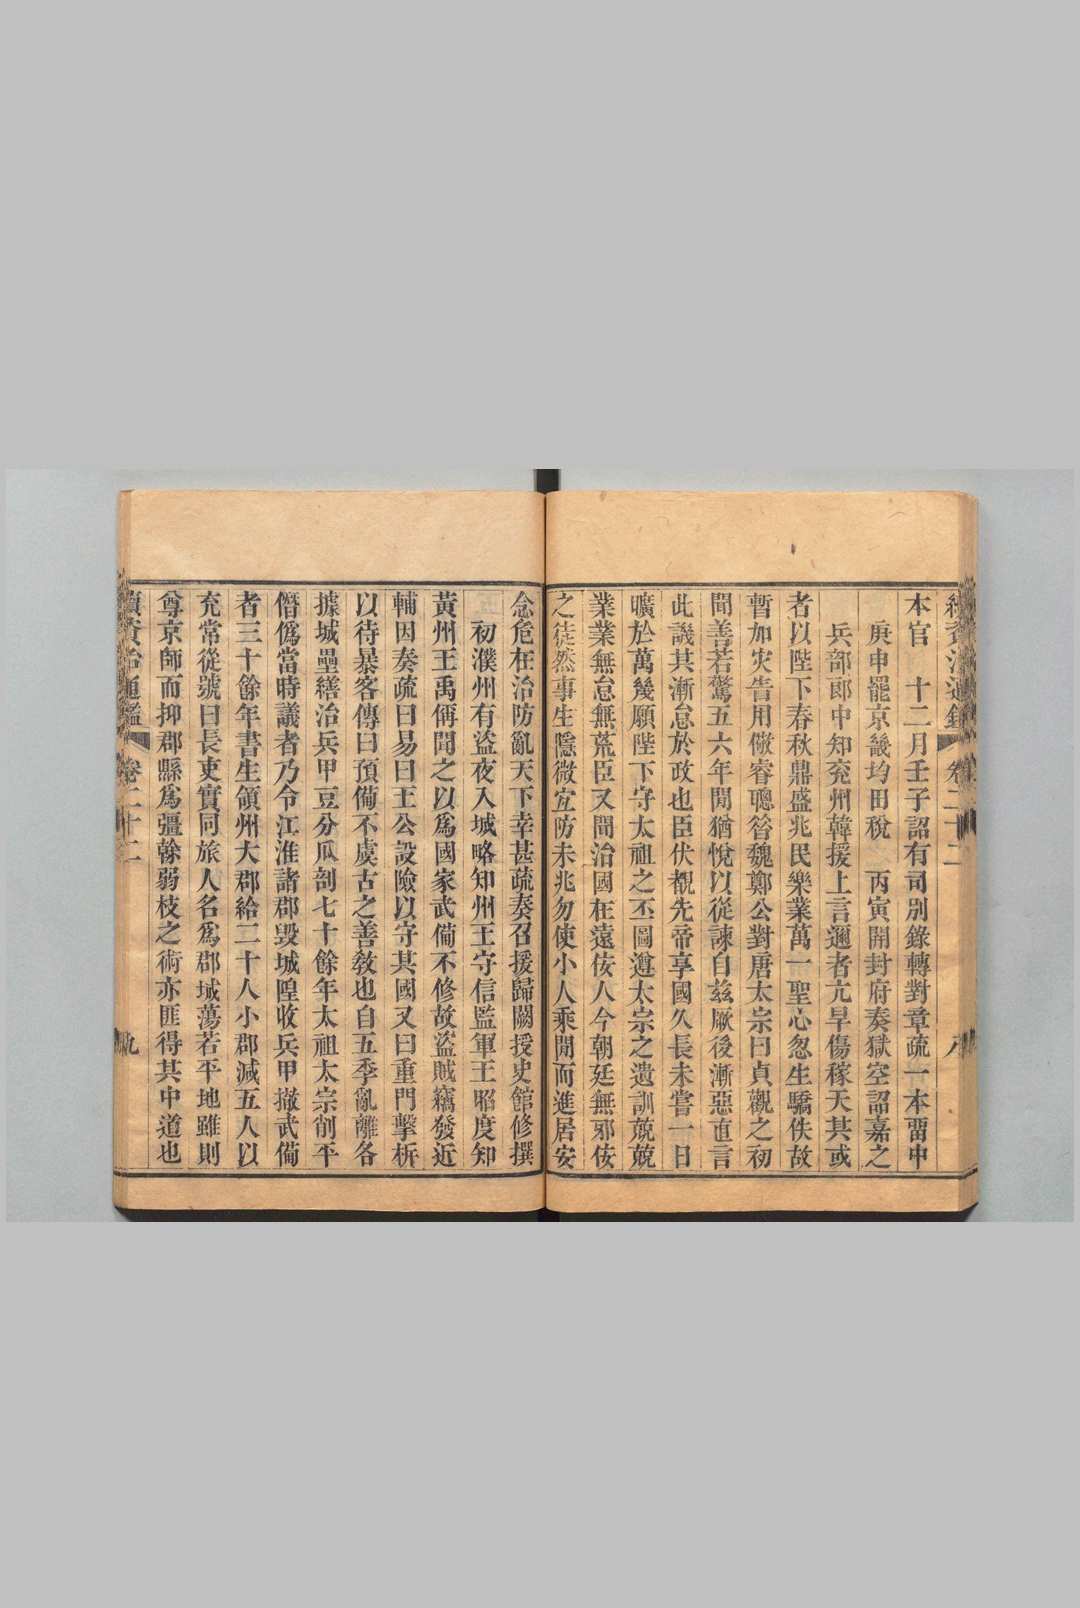 續資治通鑑 卷二十二 八
本官 十二月壬子詔有司別錄轉對章疏一本畱中
庚申罷京畿均田稅 丙寅開封府奏獄空詔嘉之
兵部郎中知兖州韓援上言邇者亢旱傷稼天其或
者以陛下春秋鼎盛兆民樂業萬一聖心忽生驕佚故
暫加災眚用儆睿聰昝魏鄭公對唐太宗曰貞觀之初
聞善若驚五六年閒猶悅以從諫自兹厥後漸惡直言
此譏其漸怠於政也臣伏覩先帝享國久長未嘗一日
曠於萬幾願陛下守太祖之丕圖遵太宗之遺訓兢兢
業業無怠無荒臣又聞治國在遠佞人今朝廷無邪佞
之徒然事生隱微宜防未兆勿使小人乘閒而進居安
念危在治防亂天下幸甚疏奏召援歸闕授史館修撰
初濮州有盜夜入城略知州王守信監軍王昭度知
黃州王禹偁聞之以爲國家武僃不修故盜賊竊發近
輔因奏疏曰易曰王公設險以守其國又曰重門擊柝
以待暴客傳曰預僃不虞古之善敎也自五季亂離各
據城壘繕治兵甲豆分瓜剖七十餘年太祖太宗削平
僭僞當時議者乃令江淮諸郡毀城隍收兵甲撤武僃
者三十餘年書生領州大郡給二十人小郡減五人以
充常從號曰長吏實同旅人名爲郡城蕩若平地雖則
尊京師而抑郡縣爲彊榦弱枝之術亦匪得其中道也
續資治通鑑 卷二十二 九